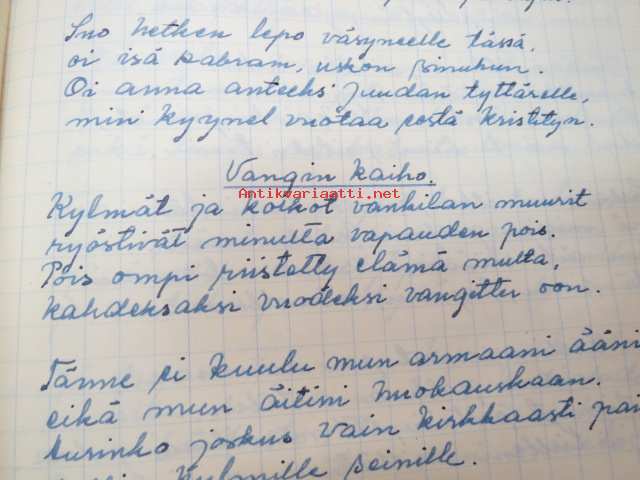 Suo hetken lepo väsyneelle tässä,
oi isä Aabram, uskon sinuhun.
Oi anna anteeksi Juudan tyttärelle,
niin kyynel vuotaa estä kristityn.
Vangin kaiho.
Antikvariaatti.net
Kylmät ja kolkot vankilan muurit
ryöstivät minulta vapauden pois.
Pois ompi riistetty elämä multa,
kahdeksaksi vuodeksi vangittu oon.
Tänne ei kuulu mun armaani ääni
eikä mun äitini huokauskaan.
Aurinko joskus vain kirkkaasti
kylmille seinille.